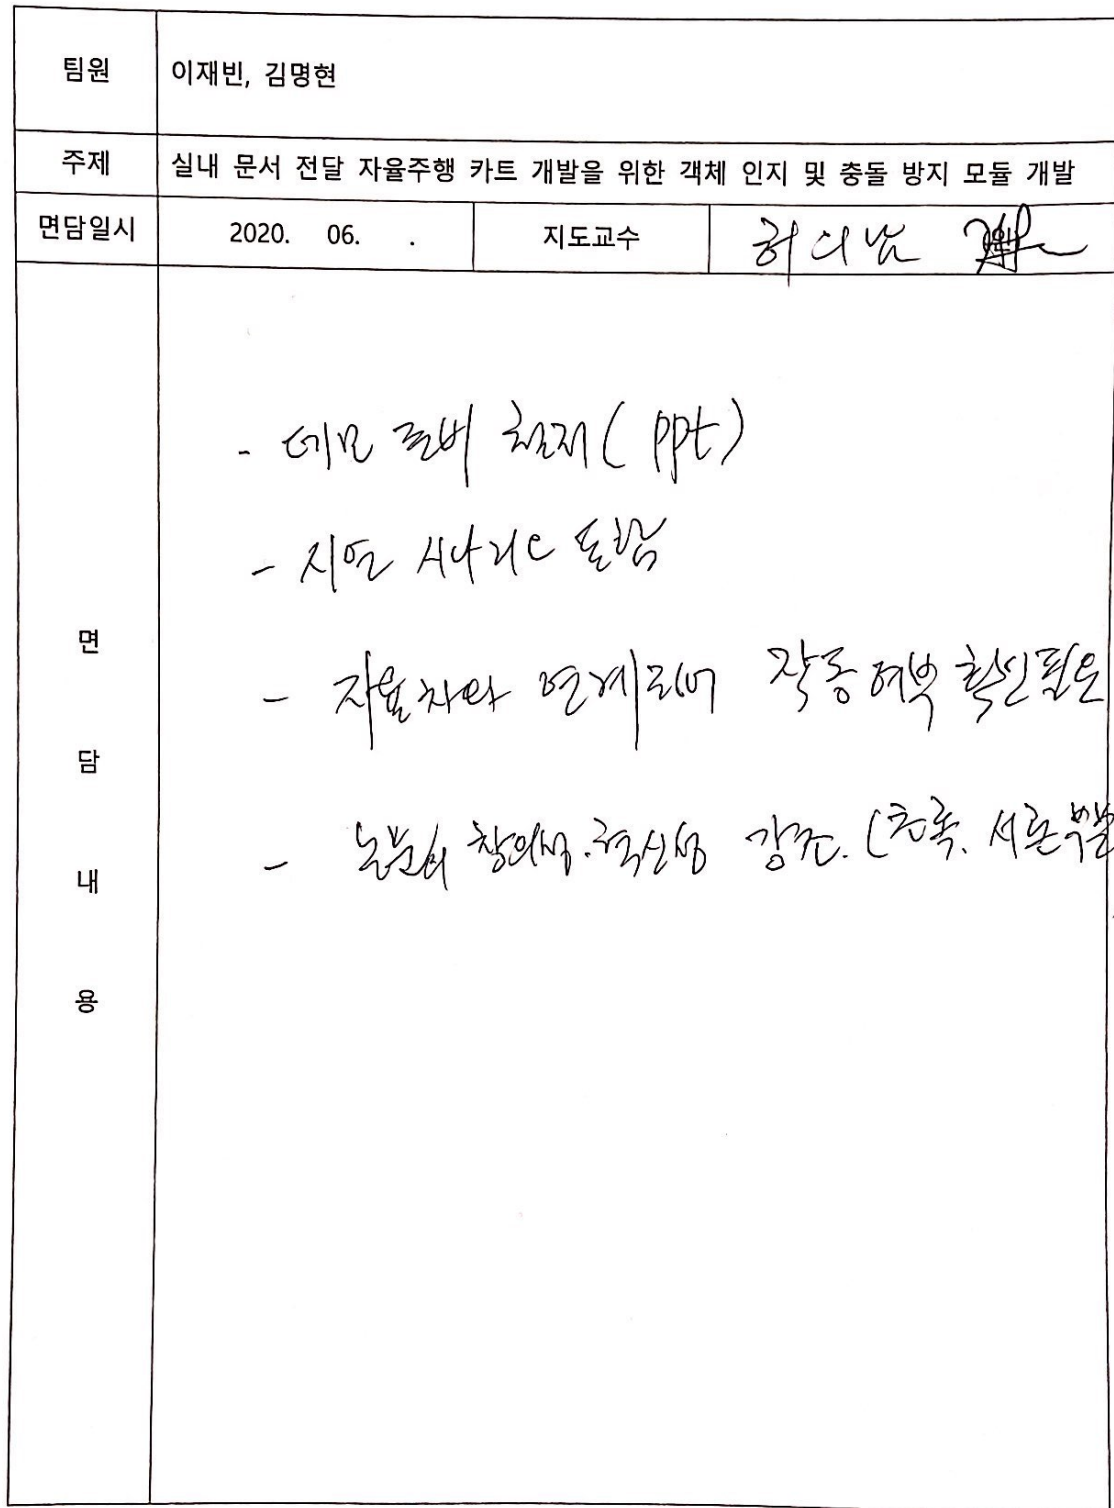 팀원 이재빈, 김명현
주제 실내 문서 전달 자율주행 카트 개발을 위한 객체 인지 및 충돌 방지 모듈 개발
면담일시 2020. 06. . 지도교수 허의남
면담내용
- 데모 준비 철저 ( ppt )
- 지연 시나리오 포함
- 자율차와 연계되어 작동여부 확인필요
- 논문의 창의성.혁신성 강조. (초록. 서론부분